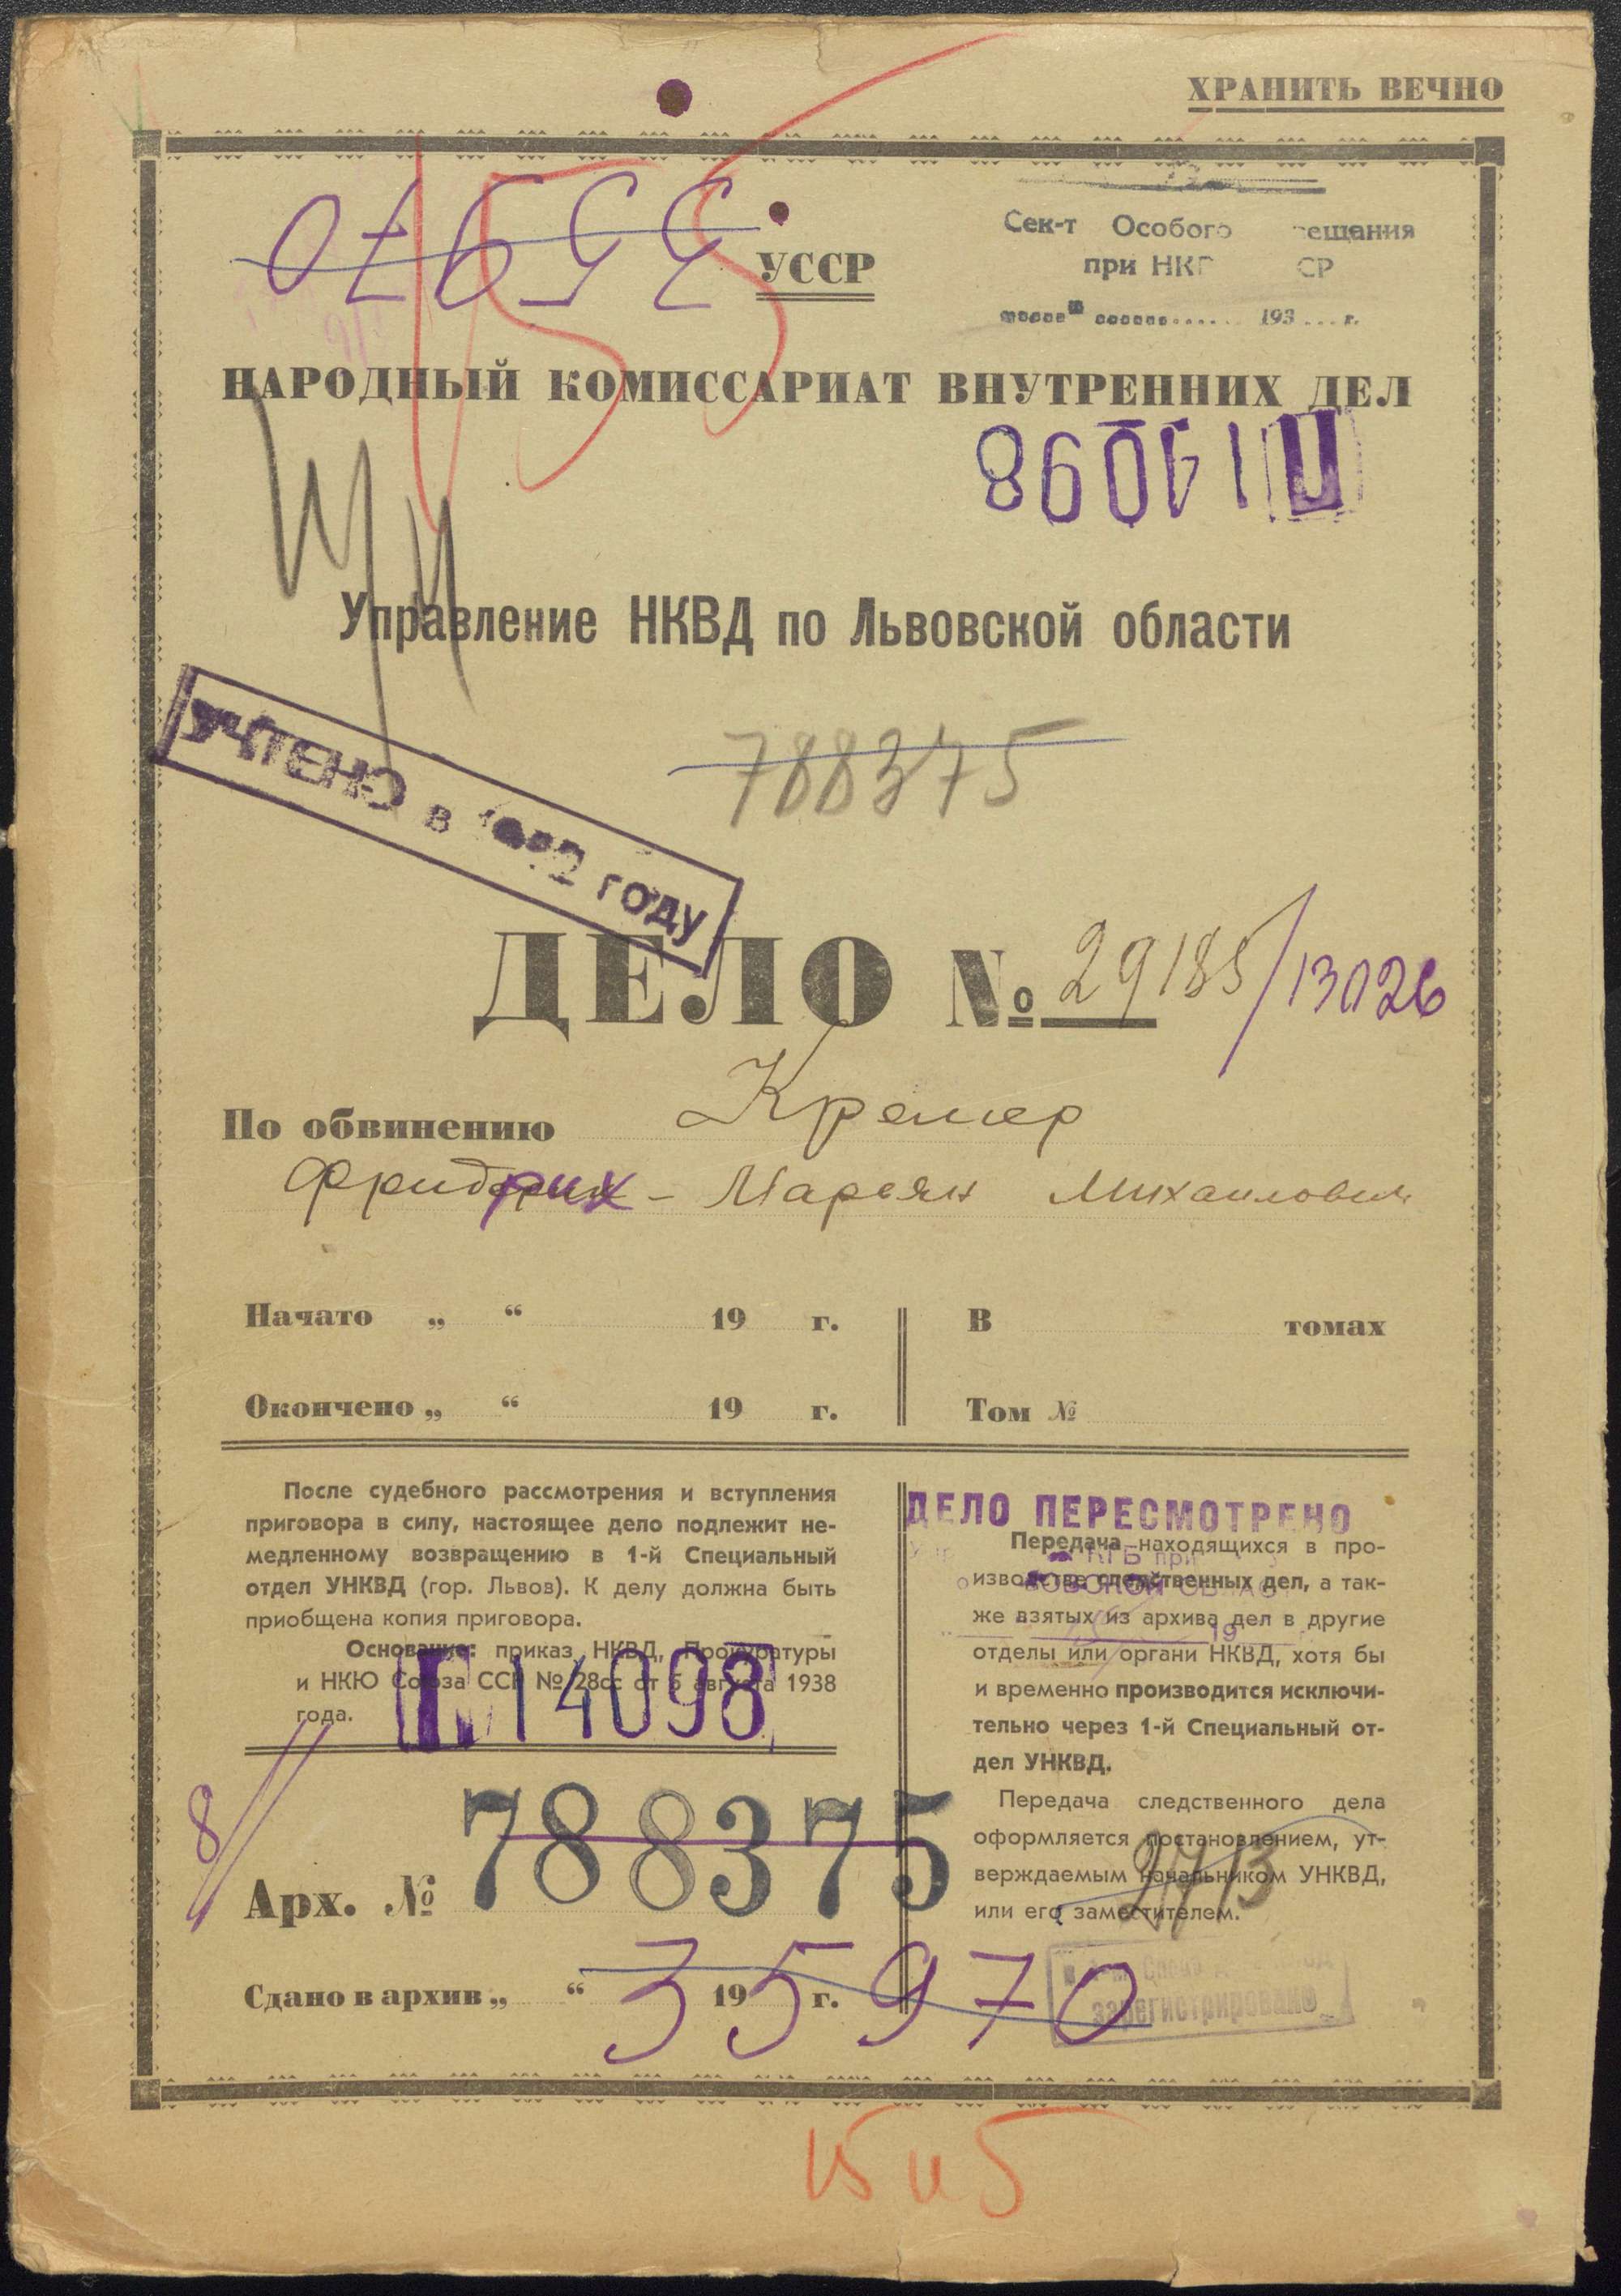 ХРАНИТЬ ВЕЧНО
35970
УССР
Сек-т Особого ещания
при НК СР
193 г.
НАРОДНЫЙ КОМИССАРИАТ ВНУТРЕННИХ ДЕЛ
П 14098
Управление НКВД по Львовской области
УЧТЕНО в году
788375
ДЕЛО № 29185/13026
По обвинению Кремер
Фридрих - Марьян Михайлович
Начато „ “ 19 г.
В томах
Окончено „ “ 19 г.
Том №
После судебного рассмотрения и вступления
приговора в силу, настоящее дело подлежит не-
медленному возвращению в 1-й Специальный
отдел УНКВД (гор. Львов). К делу должна быть
приобщена копия приговора.
Основание: приказ НКВД, Прокуратуры
и НКЮ Союза ССР № 28сс от 5 августа 1938
года.
П 14098
ДЕЛО ПЕРЕСМОТРЕНО
КГБ при
Передача находящихся в про-
изводстве следственных дел, а так-
же взятых из архива дел в другие
отделы или органи НКВД, хотя бы
и временно производится исключи-
тельно через 1-й Специальный от-
дел УНКВД.
Передача следственного дела
оформляется постановлением, ут-
верждаемым начальником УНКВД,
или его заместителем.
2713
8
Арх. № 788375
Сдано в архив „ “ 19 г.
35970
зарегистрировано
15 и 5